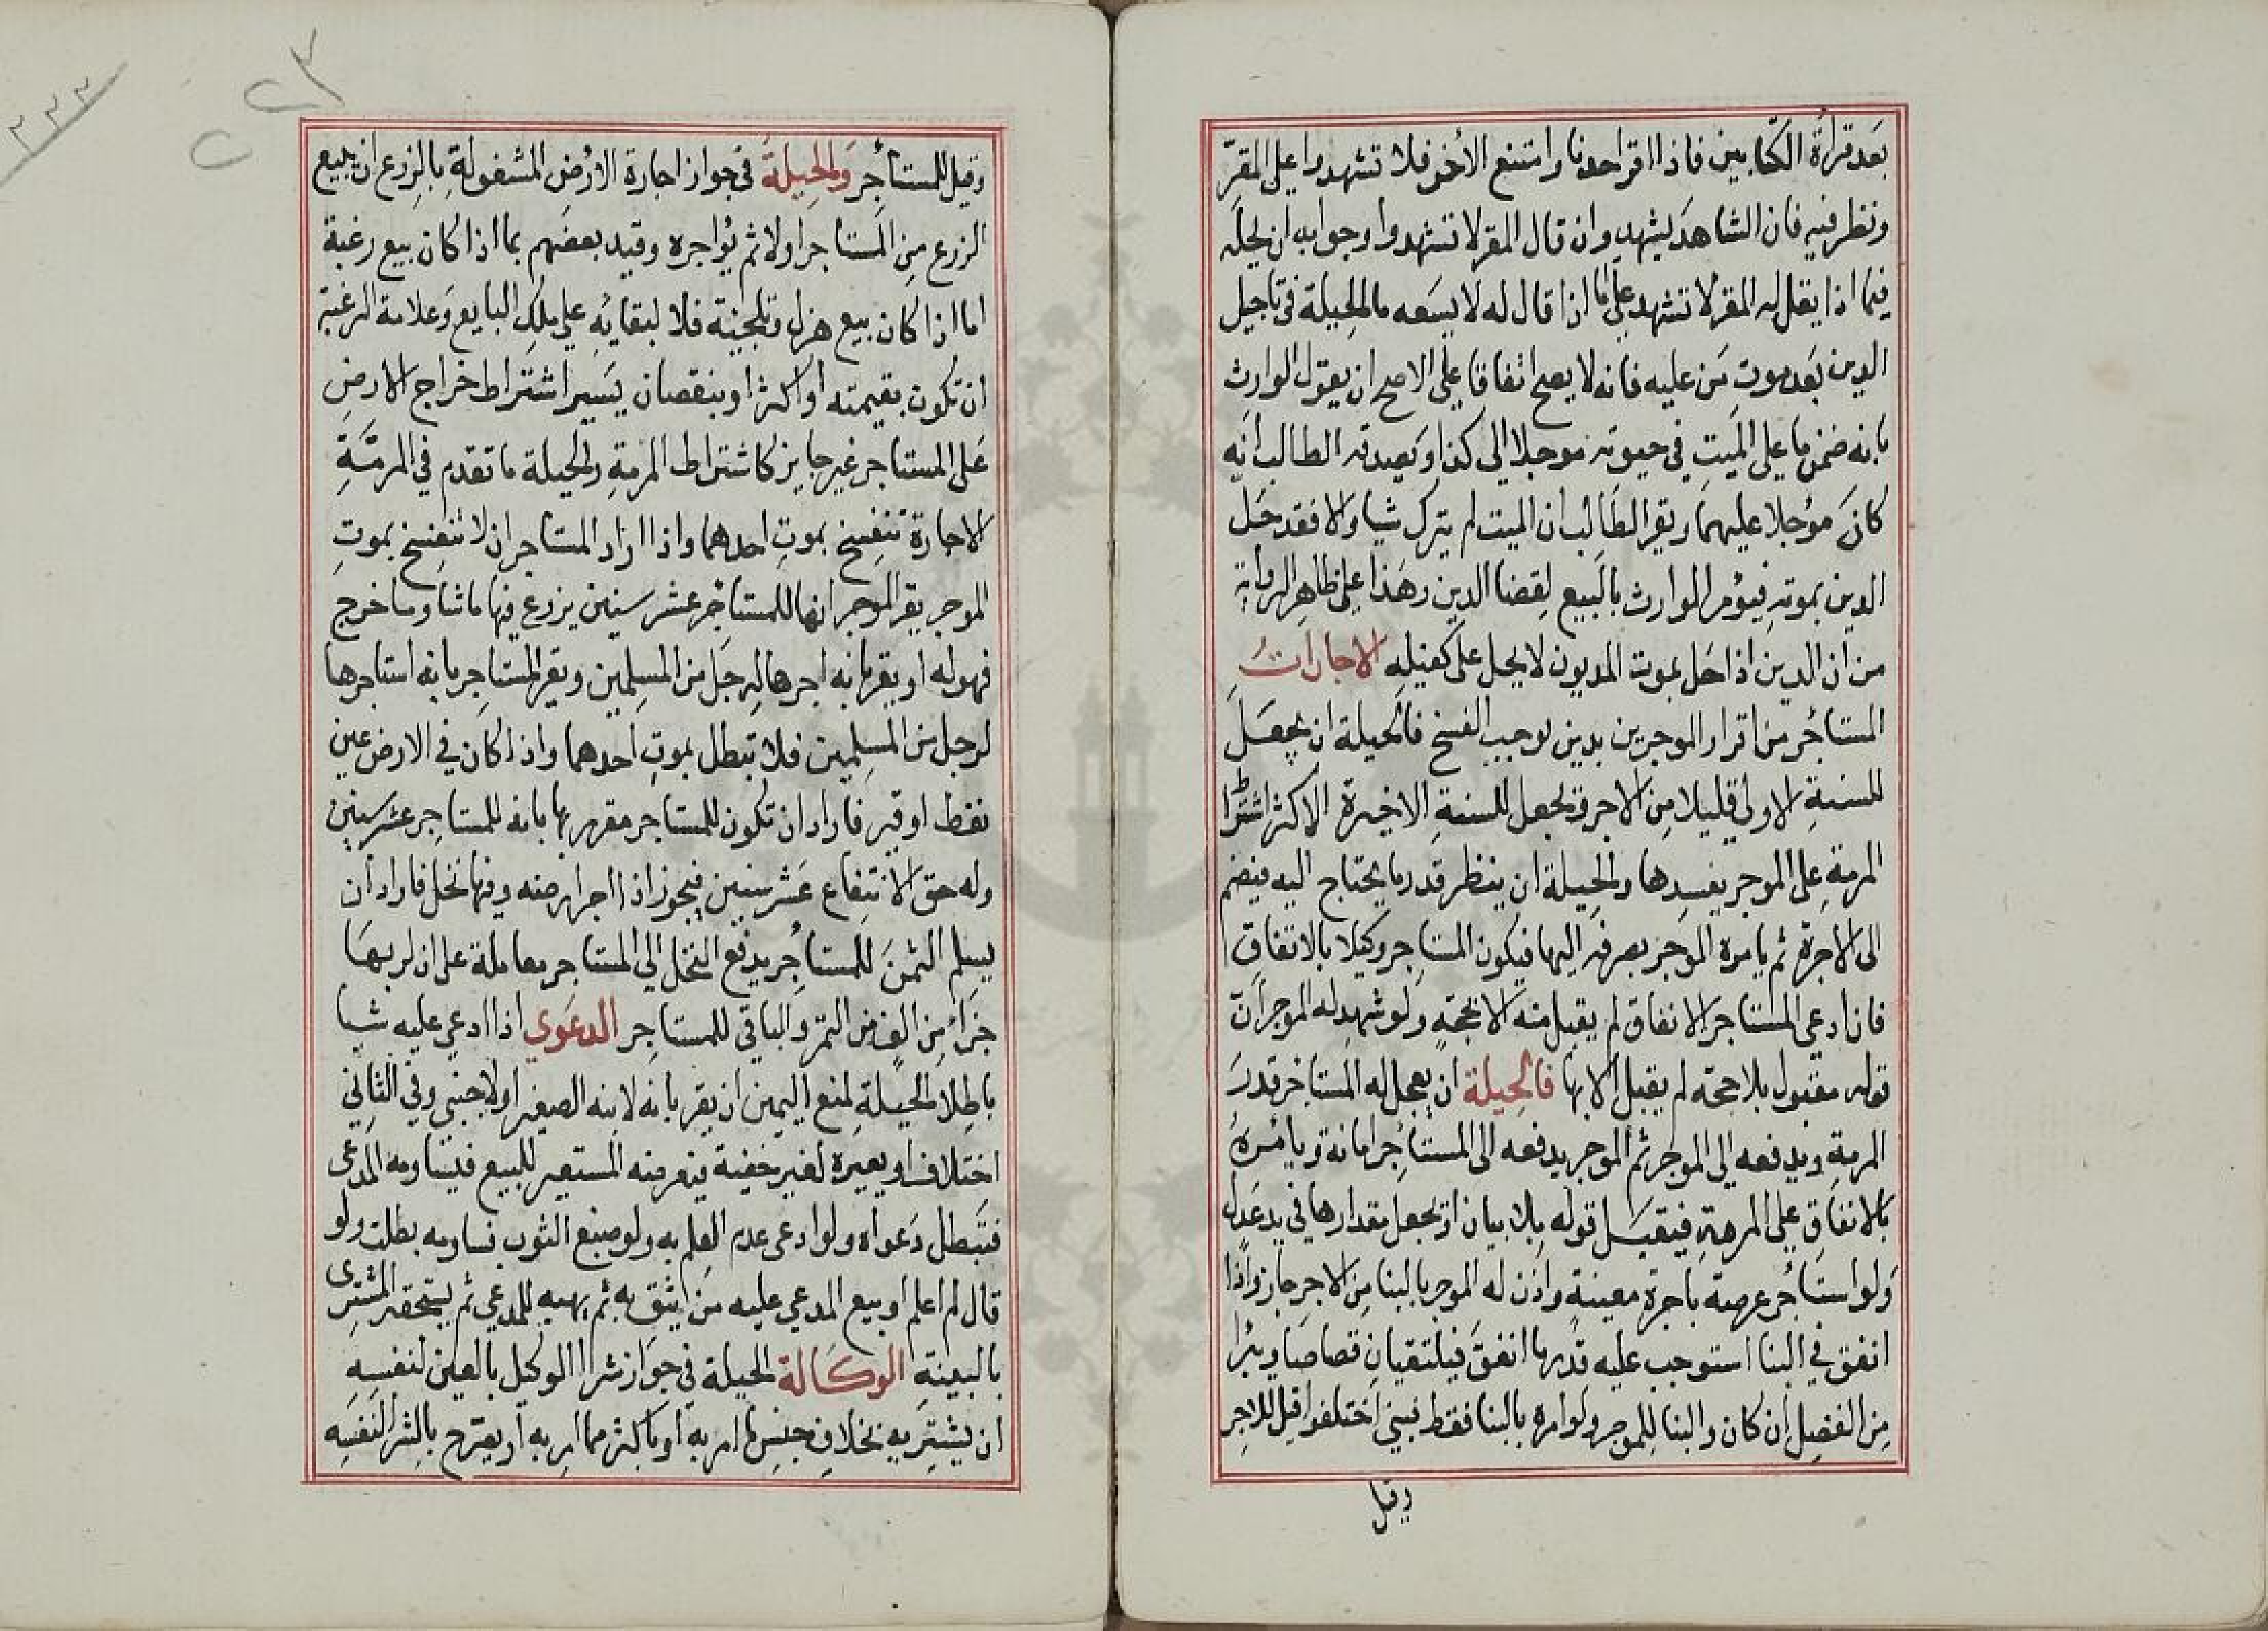 بعد قراءة الكتابين فاذا اقر احدنا وامتنع الاخر فلا تشهدوا على المقر
ونظر فيه فان الشاهد يشهد وان قال المقر لا تشهدوا وجوابه ان محله
فيما اذا يقل له المقر لا تشهد على اما اذا قال له لا يسعه مالحيلة في تاجيل
الدين بعد موت من عليه فانه لا يصح اتفاقا على الاصح ان يقول الوارث
بانه ضمن ما على الميت في حيوته موجلا الى كذا ويصدقه الطالب انه
كان مؤجلا عليهما ويقر الطالب ان الميت لم يترك شيا والا فقد حل
الدين بموته فيؤمر الوارث بالبيع لقضا الدين وهذا على ظاهر الرواية
من ان الدين اذا حل بموت المديون لا يحل على كفيله الاجارات
المستأجر من اقرار الموجر بدين يوجب الفسخ فالحيلة ان يجعل
للسنة الاولى قليلا من الاجرة ويجعل للسنة الاخيرة الاكثر اشتراط
المرمة على الموجر يفسدها والحيلة ان ينظر قدر ما يحتاج اليه فيضم
الى الاجرة ثم يامره الموجر بصرفه اليها فيكون المستاجر وكيلا بالاتفاق
فان ادعى المستاجر الانفاق لم يقبل منه الا بحجة ولو شهد له الموجر ان
قوله مقبول بلا حجة لم يقبل الا بها فالحيلة ان يعجل له المستاجر قدر
المرمة ويدفعه الى الموجر ثم الموجر يدفعه الى المستأجر امانة ويامره
بالانفاق على المرمة فيقبل قوله بلا بيان او يجعل مقدارها في يد عدل
ولو استأجر عرصة باجرة معينة واذن له الموجر بالبنا من الاجر جاز واذا
انفق في البنا استوجب عليه قدر ما انفق فيلتقيان قصاصا ويبرا
من الفضل ان كان والبنا للموجر ولو امره بالبنا فقط فبني اختلفوا قيل للاجر
وقيل
وقيل للمستأجر والحيلة في جواز اجارة الارض المشغولة بالزرع ان يبيع
الزرع من المستاجر اولا ثم يؤاجره وقيد بعضهم بما اذا كان بيع رغبة
اما اذا كان بيع هزل وتلجئة فلا لبقائه على ملك البايع وعلامة الرغبة
ان تكون بقيمته او اكثر او بنقصان يسير اشتراط خراج الارض
على المستاجر غير جايز كاشتراط المرمة والحيلة ما تقدم في المرمة
الاجارة تنفسخ بموت احدهما واذا اراد المستاجر ان لا تنفسخ بموت
الموجر يقر الموجر انها للمستاجر عشر سنين يزرع فيها ما شا وما خرج
فهو له او يقر بانه اجرها لرجل من المسلمين ويقر المستاجر بانه استاجرها
لرجل من المسلمين فلا تبطل بموت احدهما واذا كان في الارض عين
نفط او قير فاراد ان تكون للمستاجر مقر ربها بانه للمستاجر عشر سنين
وله حق الانتفاع عشر سنين فيجوز اذا اجر ارضه وفيها نخل فاراد ان
يسلم الثمن للمستأجر يدفع النخل الى المستاجر معاملة على ان لربها
جزأ من الف من التمر والباقي للمستاجر الدعوي اذا ادعى عليه شيا
باطلا الحيلة لمنع اليمين ان يقر بانه لابنه الصغير او لاجنبي وفي الثاني
اختلاف او يعيره لغير خفية فيعرضه المستعير للبيع فيساومه المدعى
فتبطل دعواه ولو ادعى عدم العلم به ولو صبغ الثوب فساومه بطلت ولو
قال لم اعلم او يبيع المدعي عليه من يثق به ثم يهبه للمدعي ثم يستحقه المشترى
بالبينة الوكالة الحيلة في جواز شرا الوكيل بالعين لنفسه
ان يشتريه بخلاف جنس ما امر به او باكثر مما امر به او يصرح بالشرا لنفسه